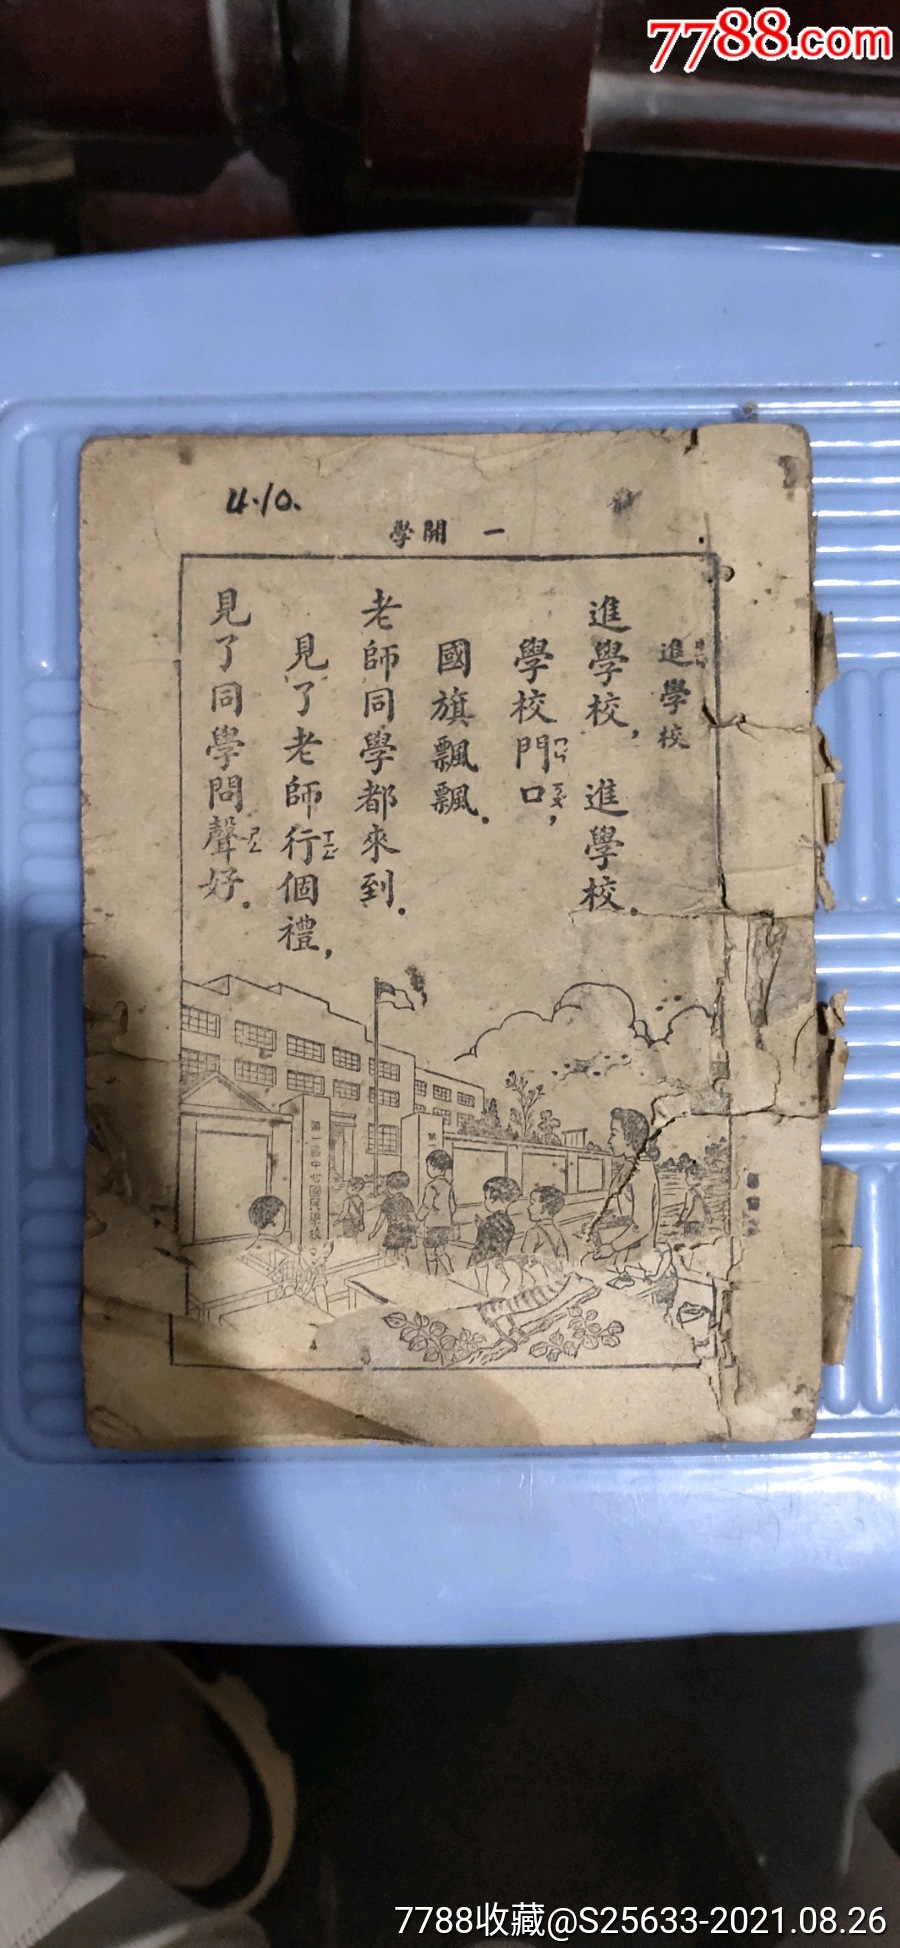 7788.com
4.10.
一 開學
進學校
進學校，進學校。
學校門口，
ㄇㄣ
ㄎㄡ
國旗飄飄。
老師同學都來到。
見了老師行個禮，
ㄒㄧㄥ
見了同學問聲好。
ㄕㄥ
第一中心國民學校
第
7788收藏@S25633-2021.08.26